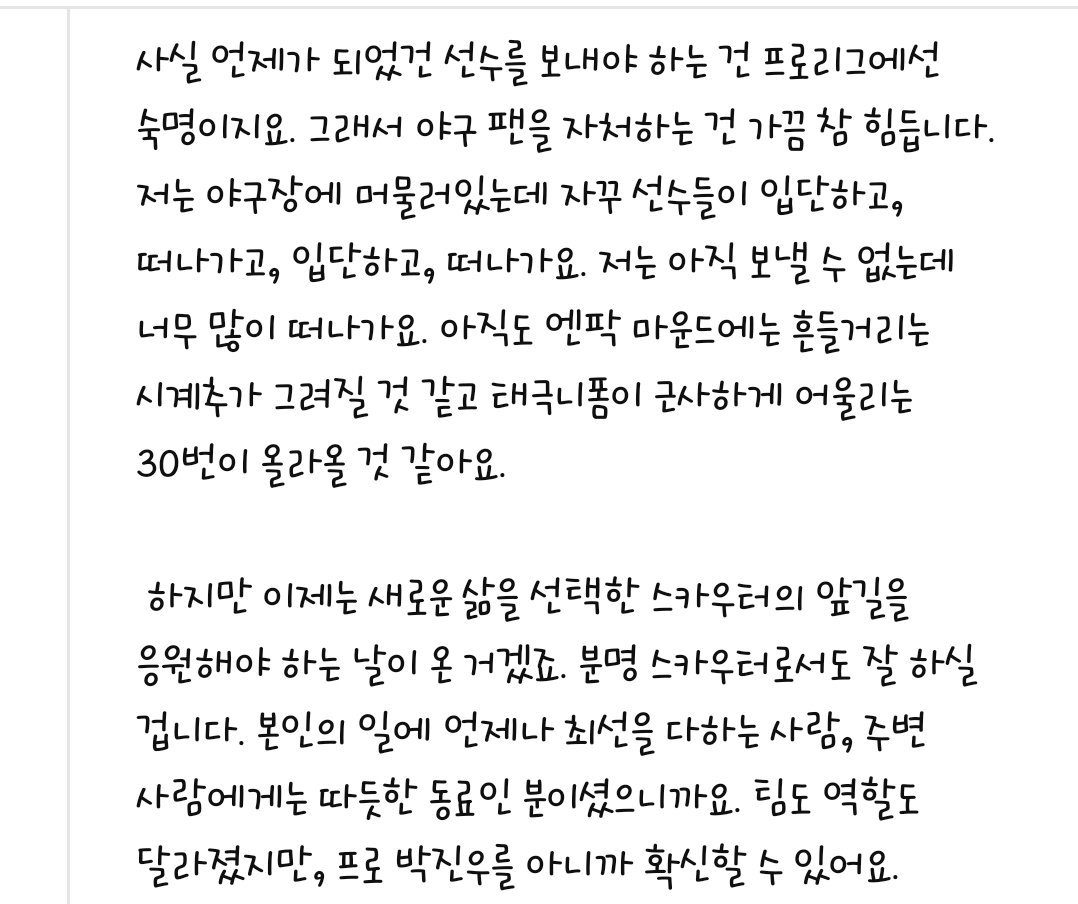 사실 언제가 되었건 선수를 보내야 하는 건 프로리그에선
숙명이지요. 그래서 야구 팬을 자처하는 건 가끔 참 힘듭니다.
저는 야구장에 머물러있는데 자꾸 선수들이 입단하고,
떠나가고, 입단하고, 떠나가요. 저는 아직 보낼 수 없는데
너무 많이 떠나가요. 아직도 엔팍 마운드에는 흔들거리는
시계추가 그려질 것 같고 태극니폼이 근사하게 어울리는
30번이 올라올 것 같아요.
하지만 이제는 새로운 삶을 선택한 스카우터의 앞길을
응원해야 하는 날이 온 거겠죠. 분명 스카우터로서도 잘 하실
겁니다. 본인의 일에 언제나 최선을 다하는 사람, 주변
사람에게는 따듯한 동료인 분이셨으니까요. 팀도 역할도
달라졌지만, 프로 박진우를 아니까 확신할 수 있어요.